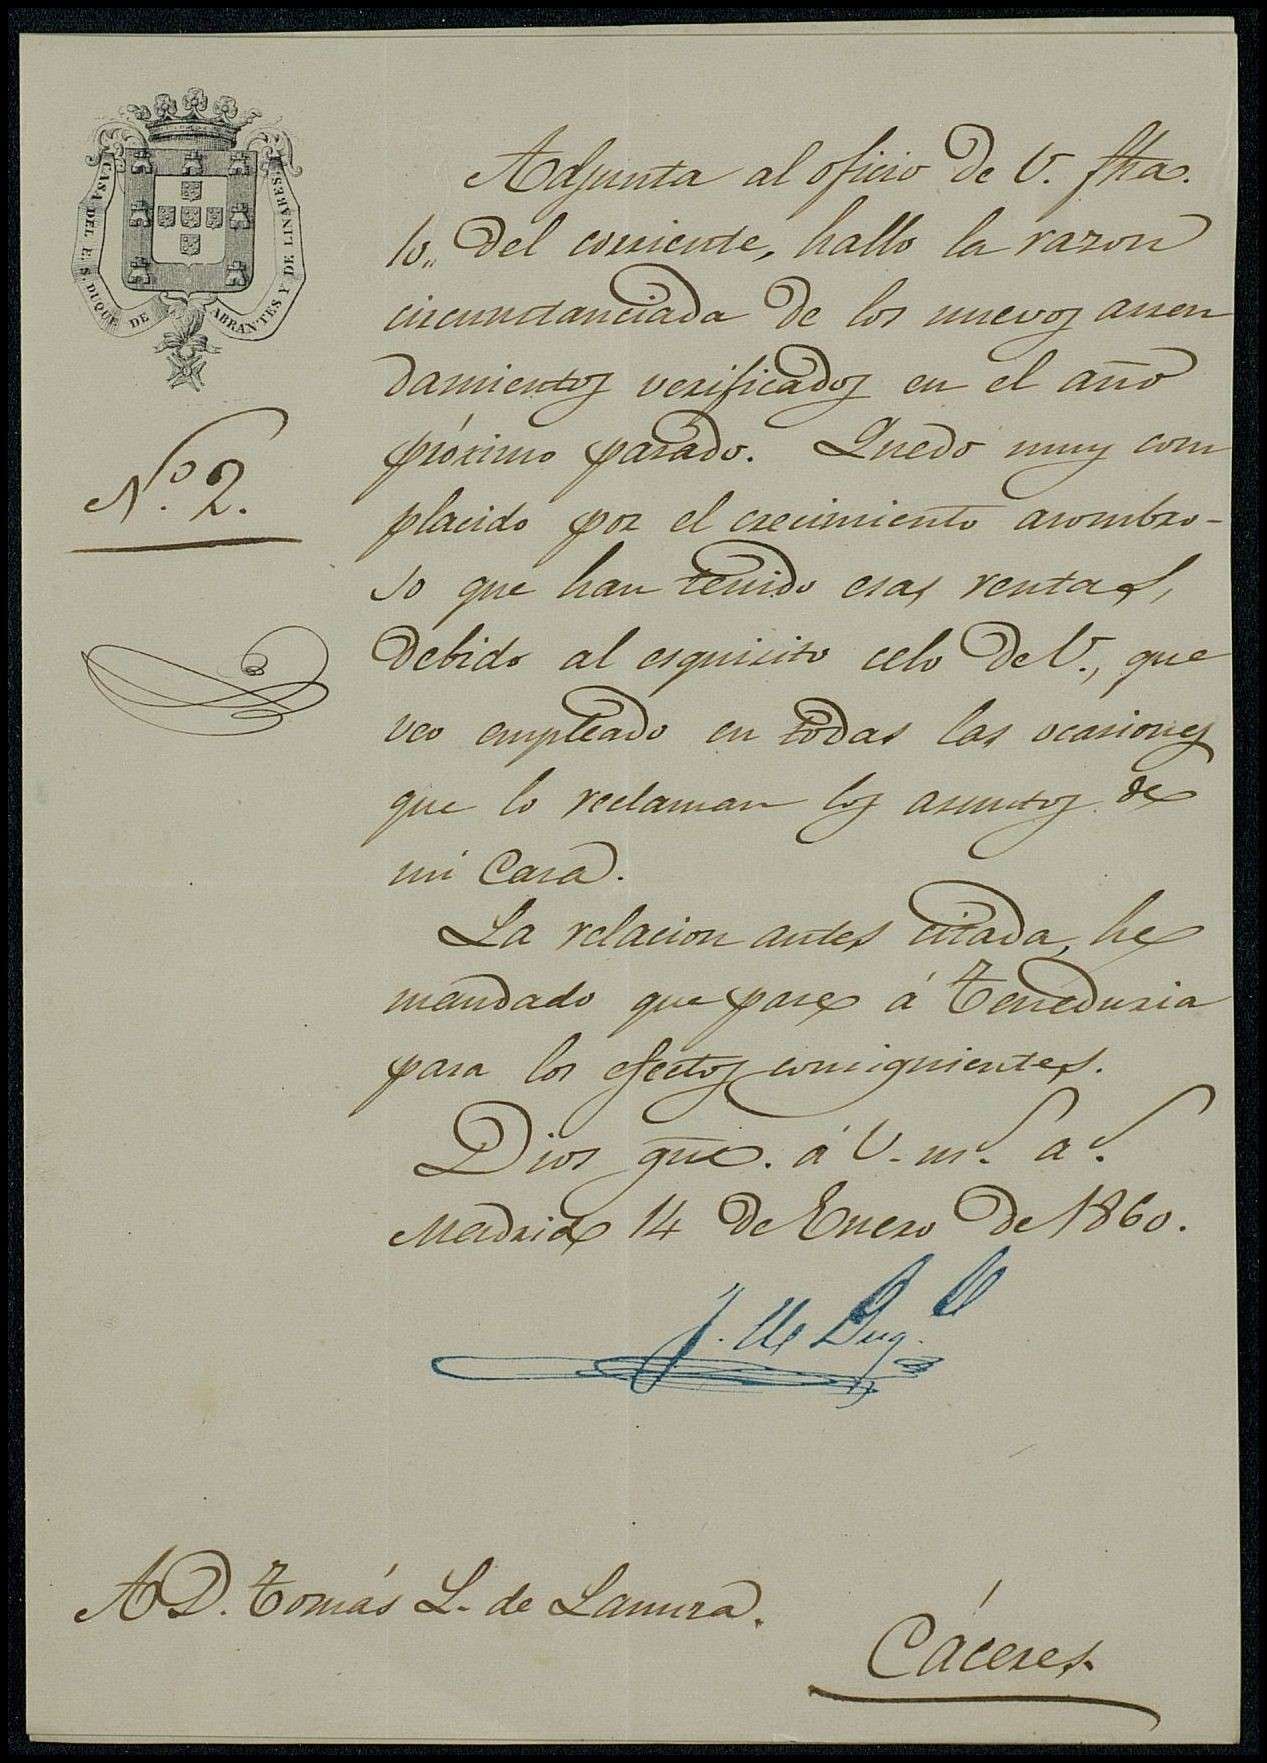 CASA DEL E. S. DUQUE DE ABRANTES Y DE LINARES.
Nº. 2.
Adjunta al oficio de V. fha.
10,, del corriente, hallo la razon
circunstanciada de los nuevos arren
damientos verificados en el año
próximo pasado. Quedo muy com
placido por el crecimiento asombro-
so que han tenido esas rentas,
debido al esquisito celo de V., que
veo empleado en todas las ocasiones
que lo reclaman los asuntos de
mi Casa.
La relacion antes citada, he
mandado que pase á Teneduria
para los efectos consiguientes.
Dios gue. á V. ms. as.
Madrid 14 de Enero de 1860.
A D. Tomás L. de Lamura.
Cáceres.